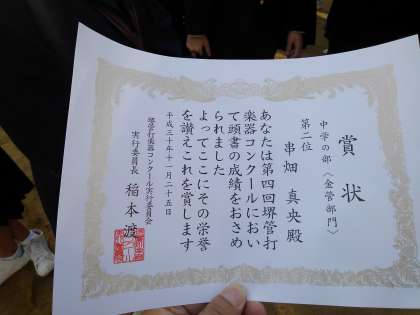 賞状
中学の部〈金管部門〉
第二位
串畑 真央殿
あなたは第四回堺管打
楽器コンクールにおい
て頭書の成績をおさめ
られました
よってここにその栄誉
を讃えこれを賞します
平成三十年十一月二十五日
堺管打楽器コンクール実行委員会
実行委員長 稲本渡